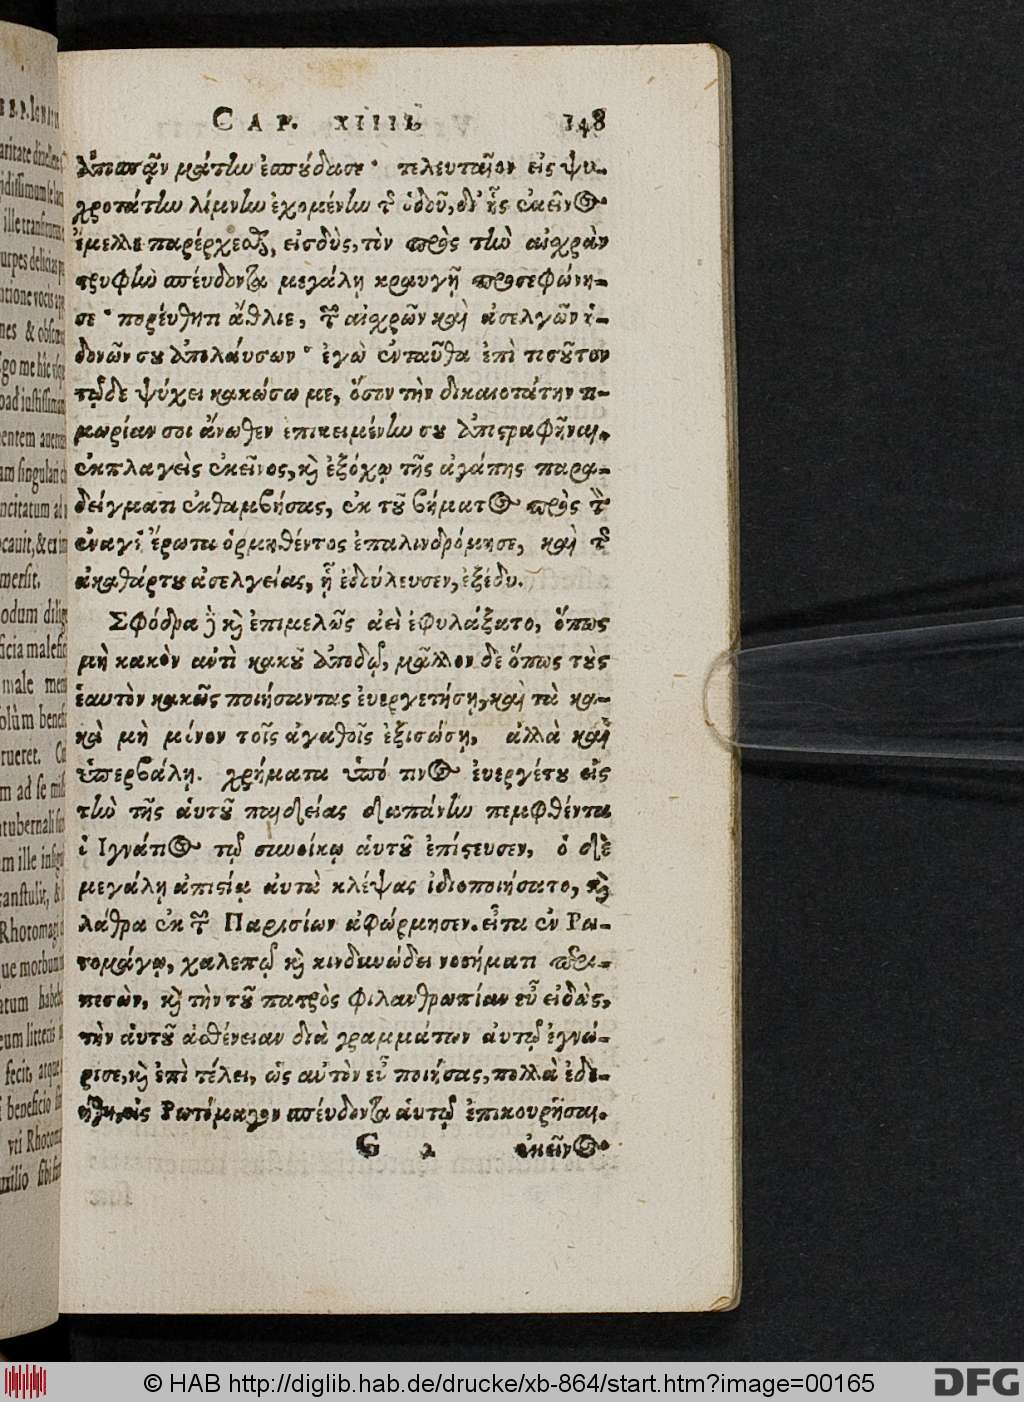 CAP. XIIII. 148
ἀποσπᾷν μάτην ἐσπούδασε· τελευταῖον εἰς ψυ-
χροτάτην λίμνην ἐχομένην τῆς ὁδοῦ, δι' ἧς ἐκεῖνος
ἔμελλε παρέρχεσθαι, εἰσδὺς, τὸν πρὸς τὴν αἰσχρὰν
τρυφὴν σπεύδοντα μεγάλῃ κραυγῇ προσεφώνη-
σε· πορεύθητι ἄθλιε, τῶν αἰσχρῶν καὶ ἀσελγῶν ἡ-
δονῶν σου ἀπολαύσων· ἐγὼ ἐνταῦθα ἐπὶ τοσοῦτον
τῷδε ψύχει κακώσω με, ὅσον τὴν δικαιοτάτην τι-
μωρίαν σοι ἄνωθεν ἐπικειμένην σου ἀποστραφῆναι.
ἐκπλαγεὶς ἐκεῖνος, καὶ ἐξόχῳ τῆς ἀγάπης παρα-
δείγματι ἐκθαμβήσας, ἐκ τοῦ βήματος πρὸς τὸν
ἐναγῆ ἔρωτα ὁρμηθέντος ἐπαλινδρόμησε, καὶ τῆς
ἀκαθάρτου ἀσελγείας, ᾗ ἐδούλευσεν, ἐξέδυ.
Σφόδρα δὲ καὶ ἐπιμελῶς ἀεὶ ἐφυλάξατο, ὅπως
μὴ κακὸν ἀντὶ κακοῦ ἀποδῷ, μᾶλλον δὲ ὅπως τοὺς
ἑαυτὸν κακῶς ποιήσαντας εὐεργετήσῃ, καὶ τὰ κα-
κὰ μὴ μόνον τοῖς ἀγαθοῖς ἐξισώσῃ, ἀλλὰ καὶ
ὑπερβάλῃ. χρήματα ὑπό τινος εὐεργέτου εἰς
τὴν τῆς αὑτοῦ παιδείας δαπάνην πεμφθέντα
ὁ Ἰγνάτιος τῷ συνοίκῳ αὑτοῦ ἐπίστευσεν, ὁ δὲ
μεγάλῃ ἀπιστίᾳ αὐτὰ κλέψας ἰδιοποιήσατο, καὶ
λάθρα ἐκ τῶν Παρισίων ἀφώρμησεν. εἶτα ἐν Ρω-
τομάγῳ, χαλεπῷ καὶ κινδυνώδει νοσήματι περι-
πεσὼν, καὶ τὴν τοῦ πατρὸς φιλανθρωπίαν εὖ εἰδὼς,
τὴν αὑτοῦ ἀσθένειαν διὰ γραμμάτων αὐτῷ ἐγνώ-
ρισε, καὶ ἐπὶ τέλει, ὡς αὐτὸν εὖ ποιήσας, πολλὰ ἐδε-
ήθη, εἰς Ρωτόμαγον σπεύδοντα αὑτῷ ἐπικουρῆσαι.
G 2 ἐκεῖνος
© HAB http://diglib.hab.de/drucke/xb-864/start.htm?image=00165
DFG